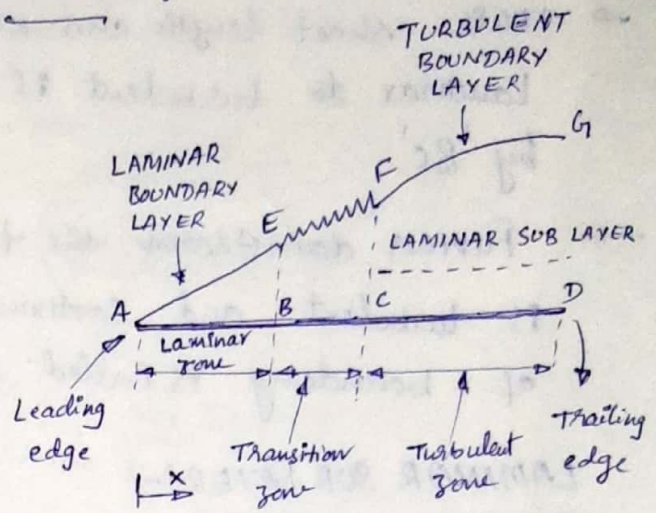 TURBULENT
BOUNDARY
LAYER
G
LAMINAR
BOUNDARY
LAYER
F
E
LAMINAR SUB LAYER
A
B
C
D
Laminar
zone
Leading
edge
Transition
zone
Turbulent
zone
Trailing
edge
x